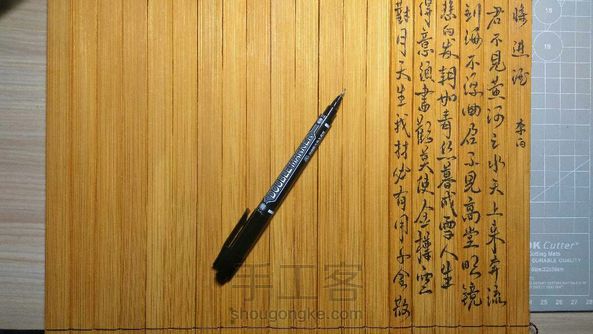 將進酒 李白
君不見黄河之水天上来奔流
到海不復回君不見高堂明鏡
悲白发朝如青丝暮成雪人生
得意须盡歡莫使金樽空
對月天生我材必有用千金散
DOUBLE MARKER
Cutter
Cutting Mats
DURABLE QUALITY
手工客
shougongke.com